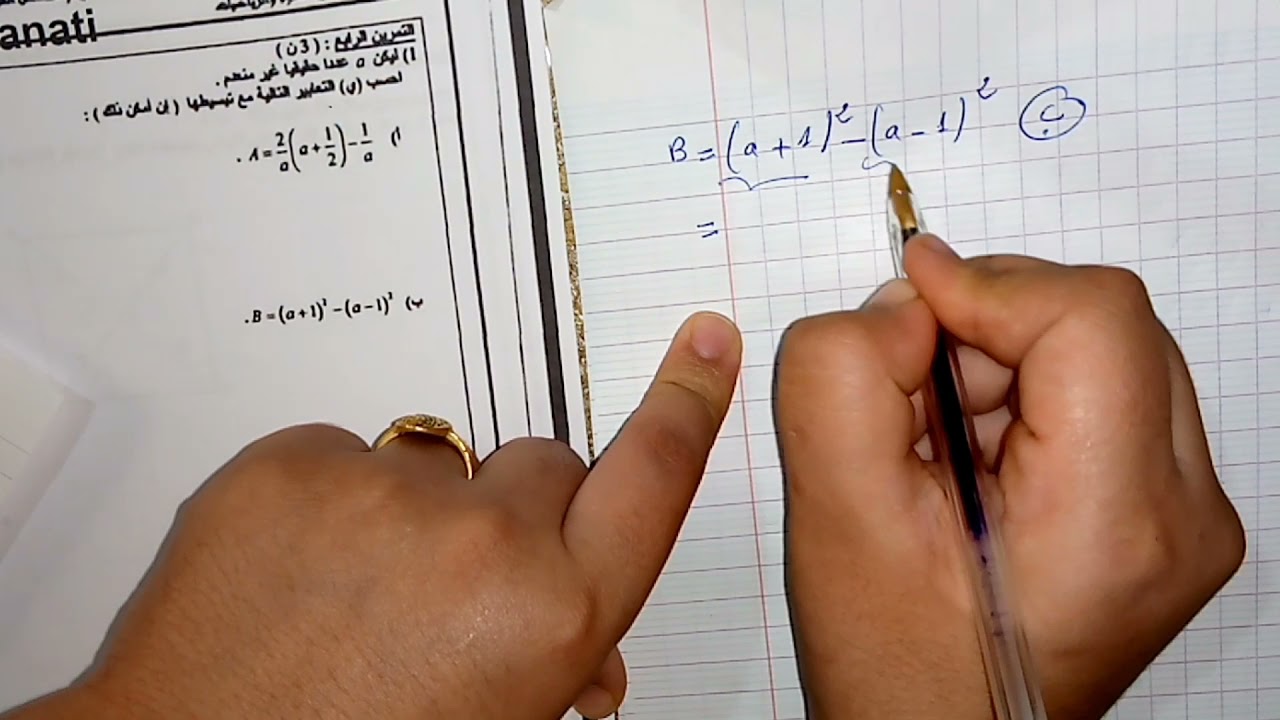 anati
التمرين الرابع : ( 3 ن )
1) ليكن a عددا حقيقيا غير منعدم .
احسب (ي) التعابير التالية مع تبسيطها ( إن أمكن ذلك ) :
أ) A = 2/a (a + 1/2) − 1/a .
ب) B = (a+1)² − (a−1)² .
B = (a + 1)² − (a − 1)² ب
=